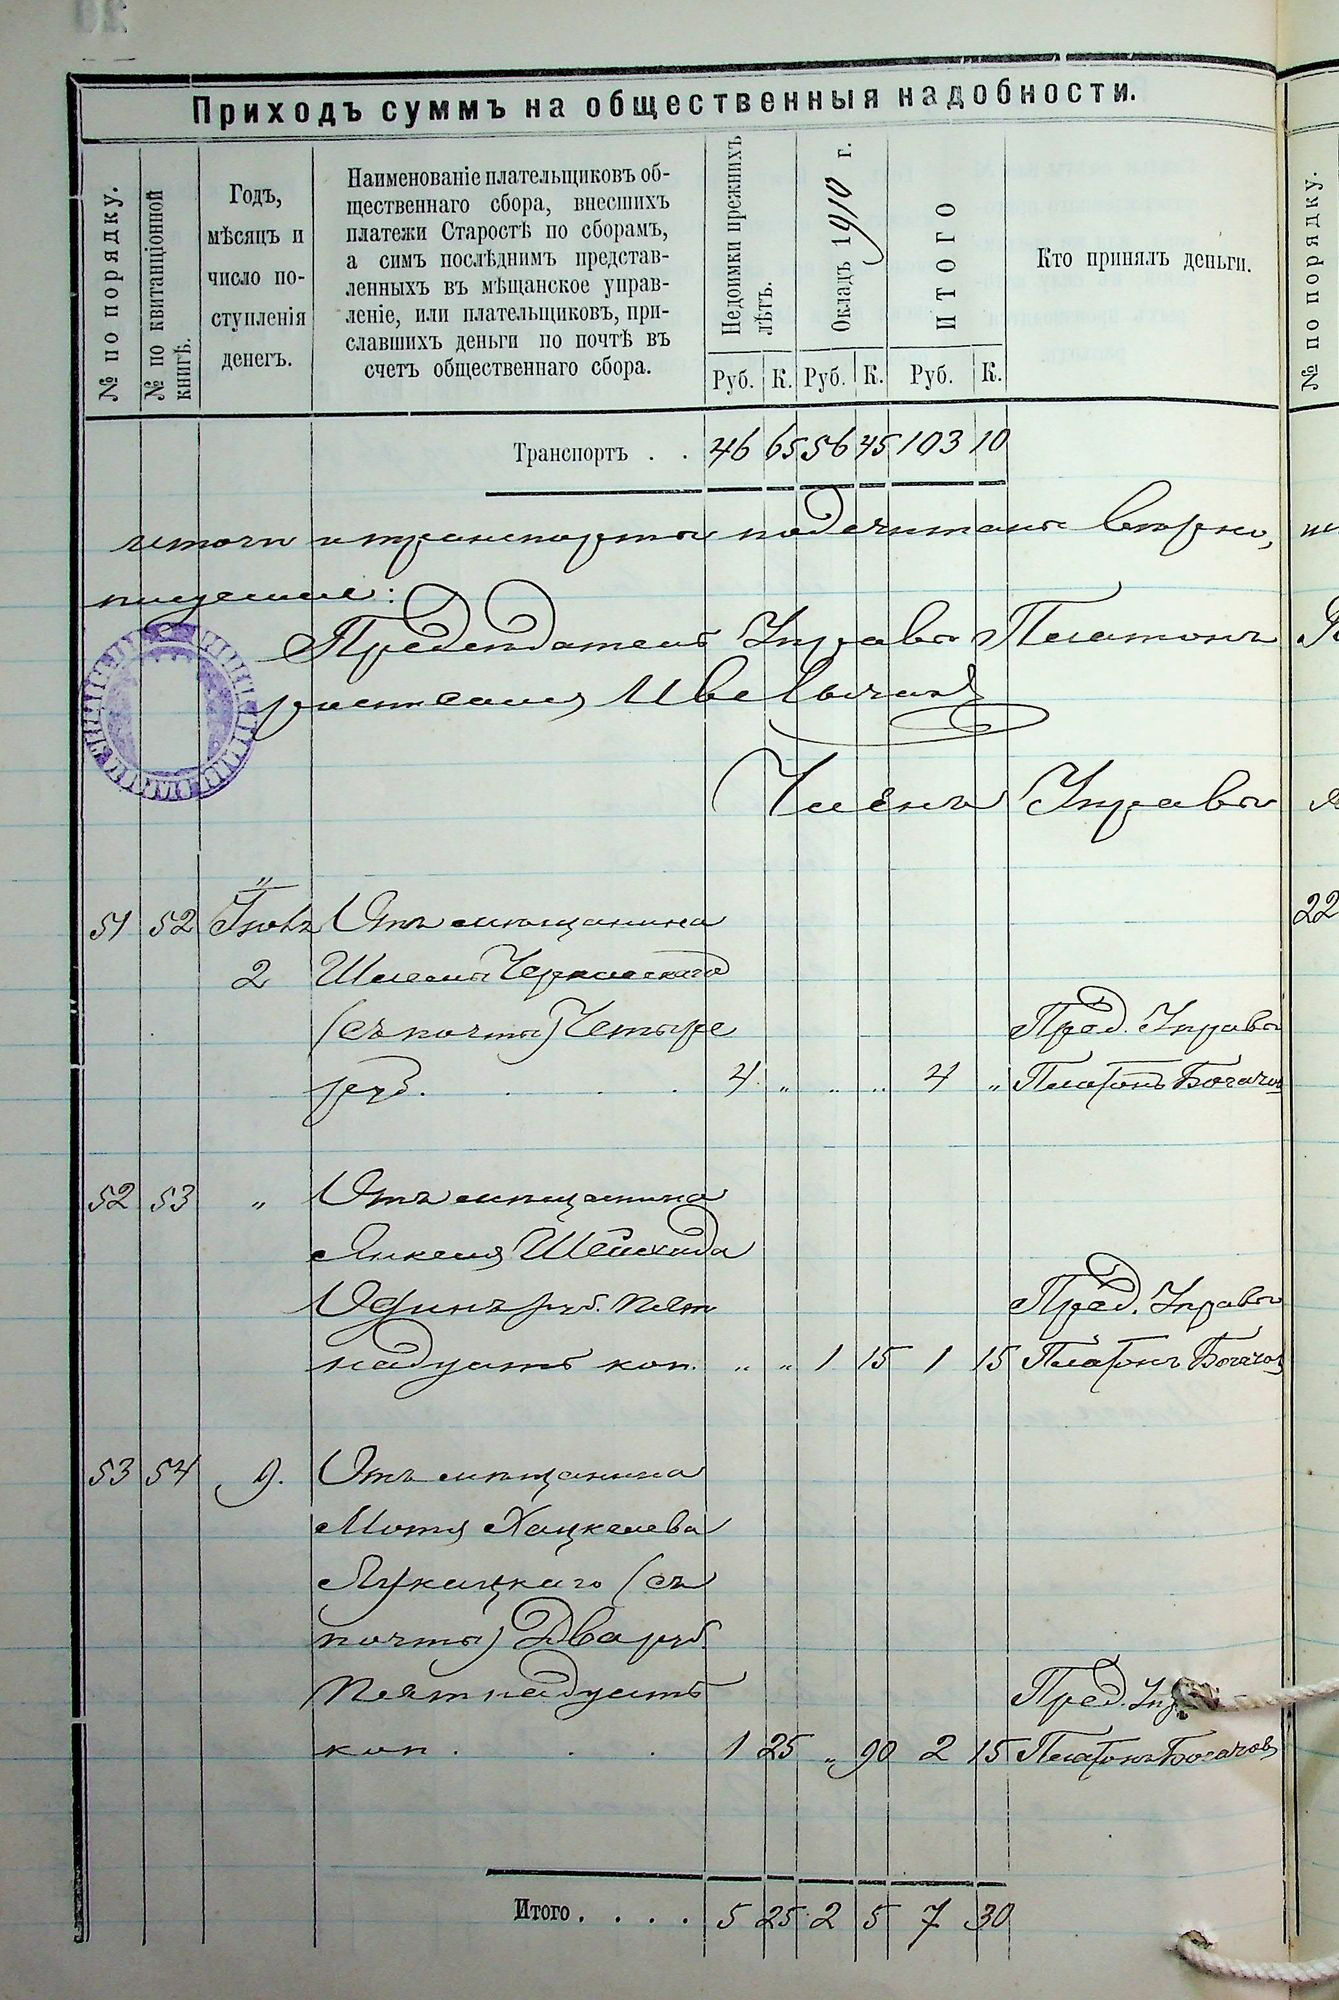 Приходъ суммъ на общественныя надобности.
№ по порядку.
№ по квитанціонной книгѣ.
Годъ,
мѣсяцъ и
число по-
ступленія
денегъ.
Наименованіе плательщиковъ об-
щественнаго сбора, внесшихъ
платежи Старостѣ по сборамъ,
а симъ послѣднимъ представ-
ленныхъ въ мѣщанское управ-
леніе, или плательщиковъ, при-
славшихъ деньги по почтѣ въ
счетъ общественнаго сбора.
Недоимки прежнихъ лѣтъ.
Окладъ 1910 г.
ИТОГО
Кто принялъ деньги.
№ по порядку.
Руб. К. Руб. К. Руб. К.
Транспортъ . . 46 65 56 45 103 10
итоги и транспорты подсчитаны вѣрно,
Предсѣдатель Управы Платонъ
Членъ Управы
51 52 Іюль Отъ мѣщанина
22
2 Шлемы Черкасскаго
(съ почты) Четыре Пред. Управы
руб. . . . . 4 „ „ „ 4 „ Платонъ Богачов
52 53 „ Отъ мѣщанина
Янкеля
Одинъ руб. пят Пред. Управы
надцать коп. „ „ 1 15 1 15 Платонъ Богачов
53 54 9. Отъ мѣщанина
Мотя Хацкелева
(съ
почты) Два руб.
пятнадцать Пред. Упр
коп . . . 1 25 „ 90 2 15 Платонъ Богачов
Итого . . . . 5 25 2 5 7 30